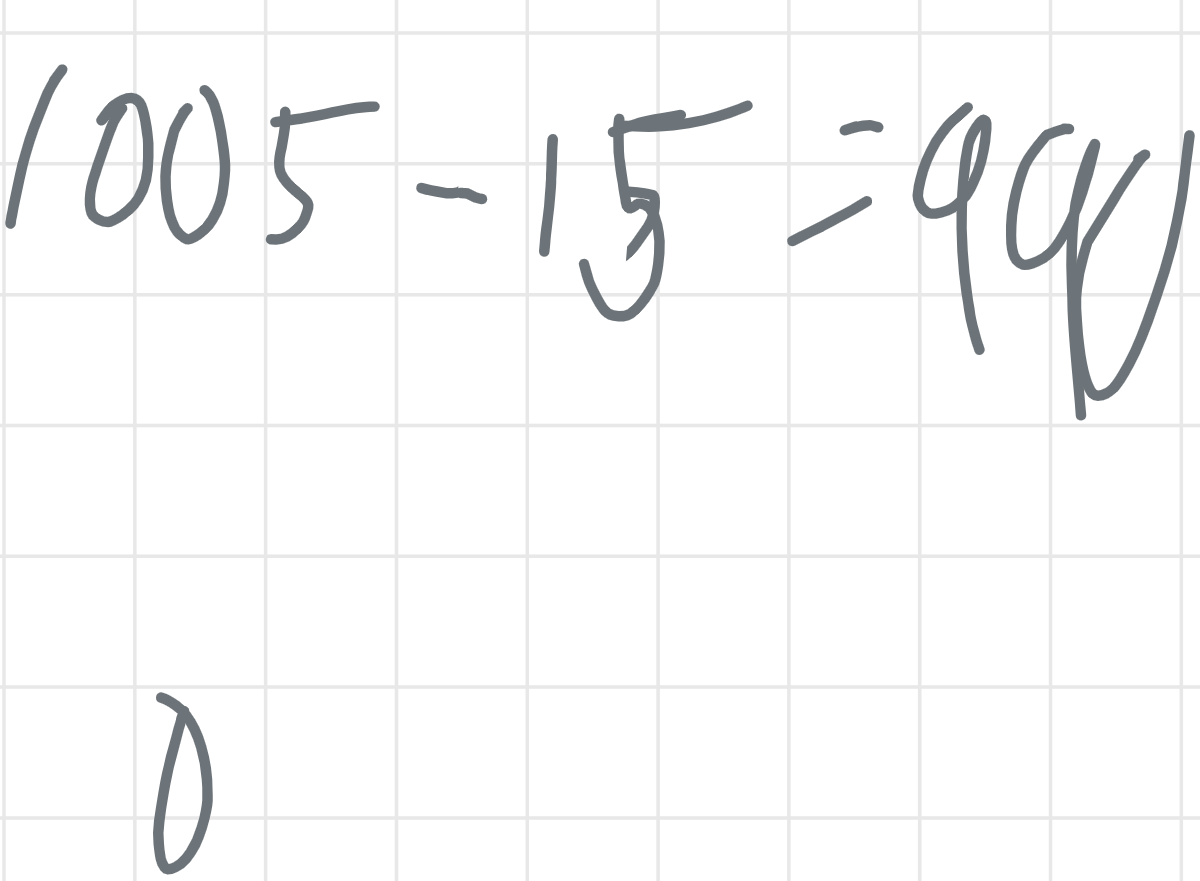 1005-15=990
0